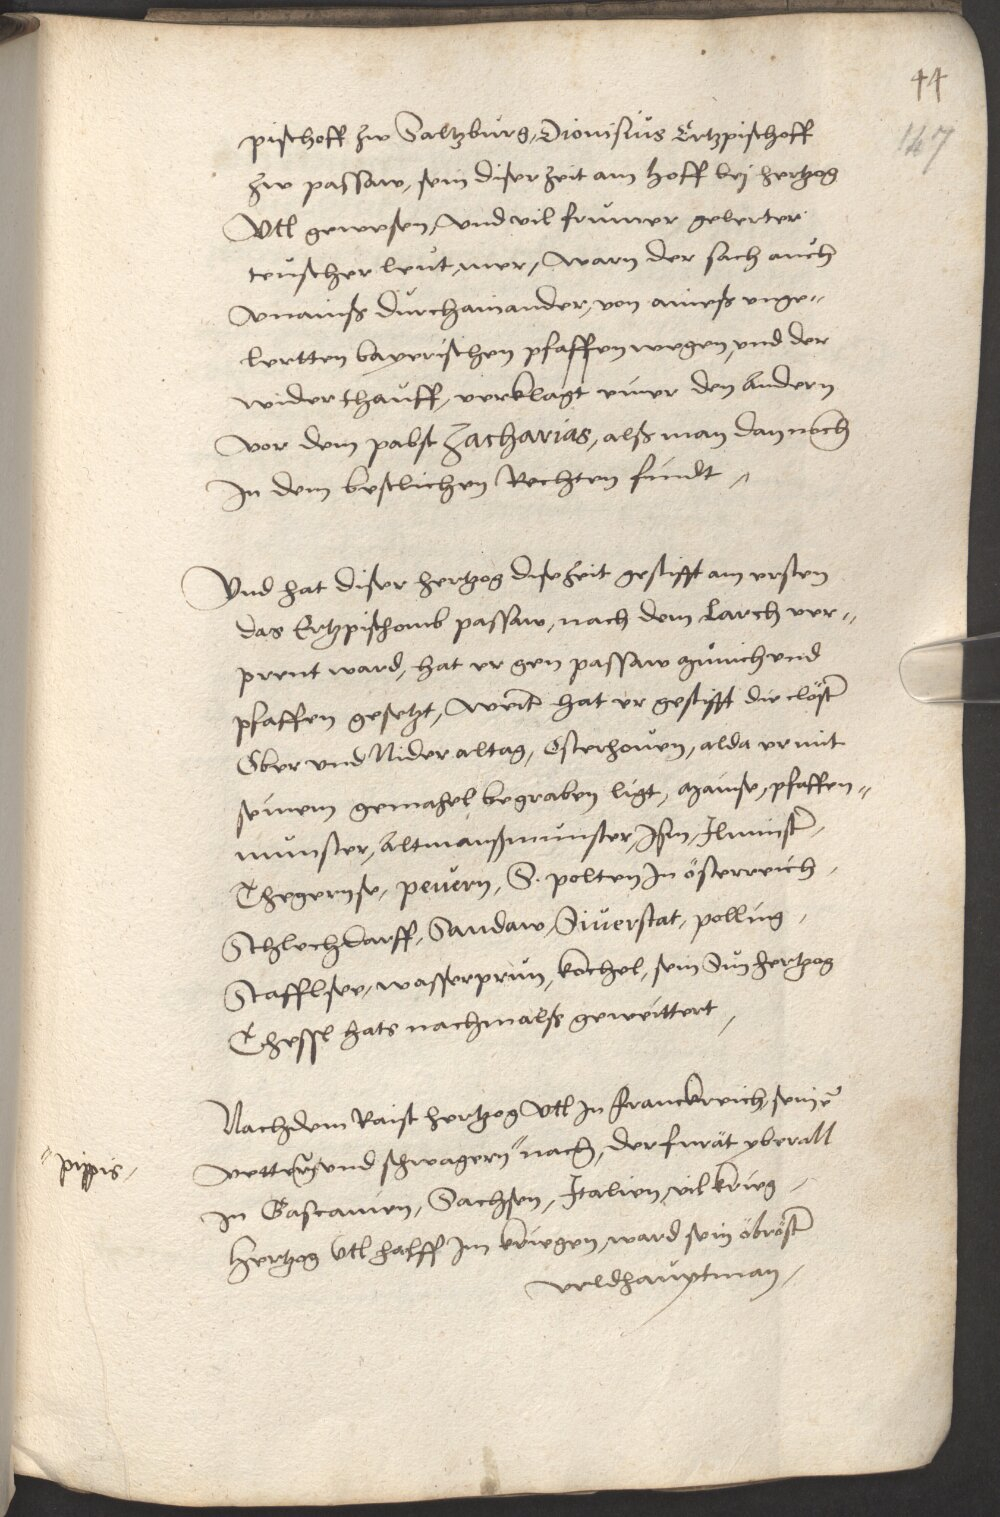 44
147
pischoff zw Saltzburg, Dionisius Ertzpischoff
zw passaw, sein diser zeit am hoff bej hertzog
Vtl gewesen, vnd vil frumer gelerter
teuscher leut mer, warn der sach auch
vnainß durchainander, von aineß vnge„
lertten bayerischen pfaffen wegen, vnd der
widerthauff, verklagt einer den Andern
vor dem pabst Zacharias, alß man dan noch
In dem bestlichen Rechten findt
Vnd hat diser hertzog dise zeit gestifft am ersten
das Ertzpischomb passaw, nach dem Larch ver„
prent ward, hat er gen passaw münich vnd
pfaffen gesetzt, weiter hat er gestifft die clöster
Ober vnd Nideraltag, Osterhouen, alda er mit
seinem gemahel begraben ligt, Mänse, pfaffen„
munster, Altmanßmunster, Isen, Ilminster
Thegernse, peüern, S. polten In österreich
Schlechdorff, Sandaw, Siuerstat, polling
Stafflsee, wasserprun, kochel, sein Sun hertzog
Thessl hats nachmalß geweittert
Nachdem Raist hertzog Vtl In Franckreich, seinen
vettern vnd schwagern " nach, der fürät yberall
„ pippis
In Gascanien, Sachsen, Italien, vil krieg
Hertzog Vtl halff Im kriegen, ward sein öbröster
veldhauptman